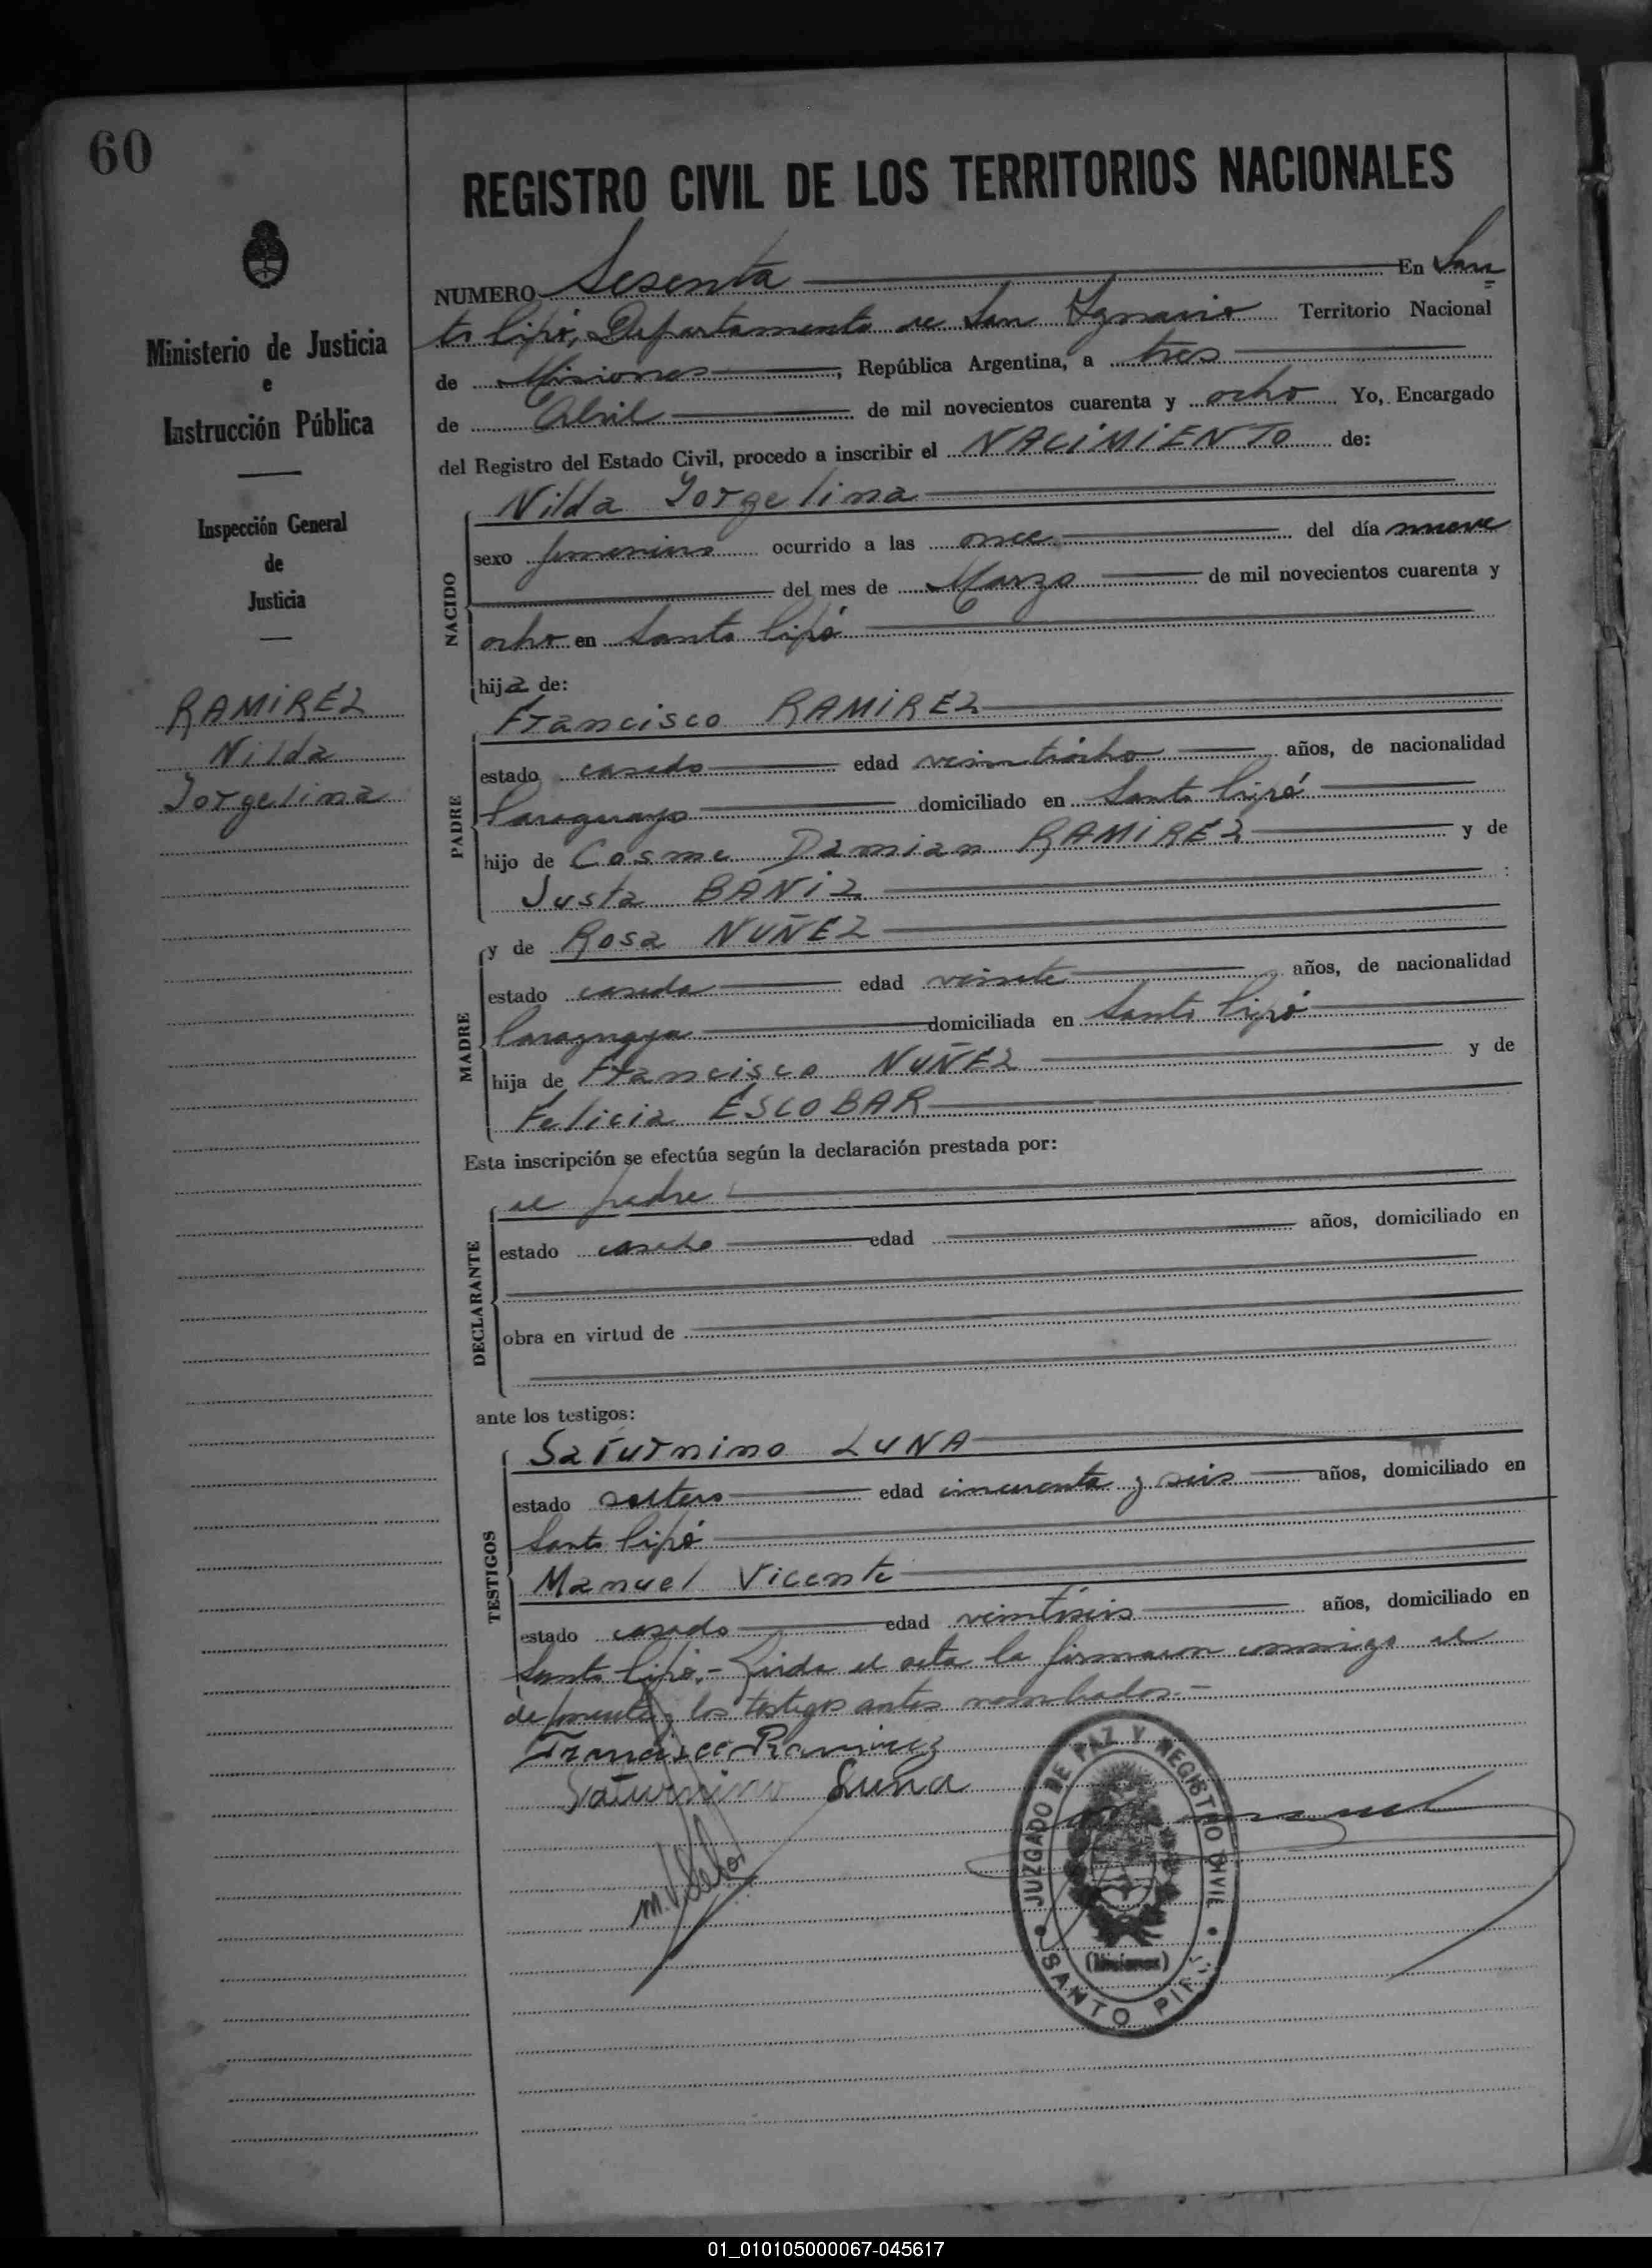 60
Ministerio de Justicia
e
Instrucción Pública
Inspección General
de
Justicia
RAMIREZ
Nilda
Jorgelina
REGISTRO CIVIL DE LOS TERRITORIOS NACIONALES
NUMERO Sesenta En San
to Pipó, Departamento de San Ignacio Territorio Nacional
de Misiones, República Argentina, a tres
de Abril de mil novecientos cuarenta y ocho Yo, Encargado
del Registro del Estado Civil, procedo a inscribir el NACIMIENTO de:
NACIDO
Nilda Jorgelina
sexo femenino ocurrido a las once del día nueve
del mes de Marzo de mil novecientos cuarenta y
ocho en Santo Pipó
hija de:
PADRE
Francisco RAMIREZ
estado casado edad veintiocho años, de nacionalidad
Paraguayo domiciliado en Santo Pipó
hijo de Cosme Damian RAMIREZ y de
Justa BANIZ
MADRE
y de Rosa NUÑEZ
estado casada edad veinte años, de nacionalidad
Paraguaya domiciliada en Santo Pipó
hija de Francisco NUÑEZ y de
Felicia ESCOBAR
Esta inscripción se efectúa según la declaración prestada por:
DECLARANTE
el padre
estado casado edad años, domiciliado en
obra en virtud de
ante los testigos:
TESTIGOS
Saturnino LUNA
estado soltero edad cincuenta y seis años, domiciliado en
Santo Pipó
Manuel Vicente
estado casado edad veintiseis años, domiciliado en
Santo Pipó.- Leida el acta la firmaron conmigo el
deponente y los testigos antes nombrados.-
Francisco Ramirez
Saturnino Luna
JUZGADO DE PAZ Y REGISTRO CIVIL
(Misiones)
SANTO PIPÓ
01_010105000067-045617